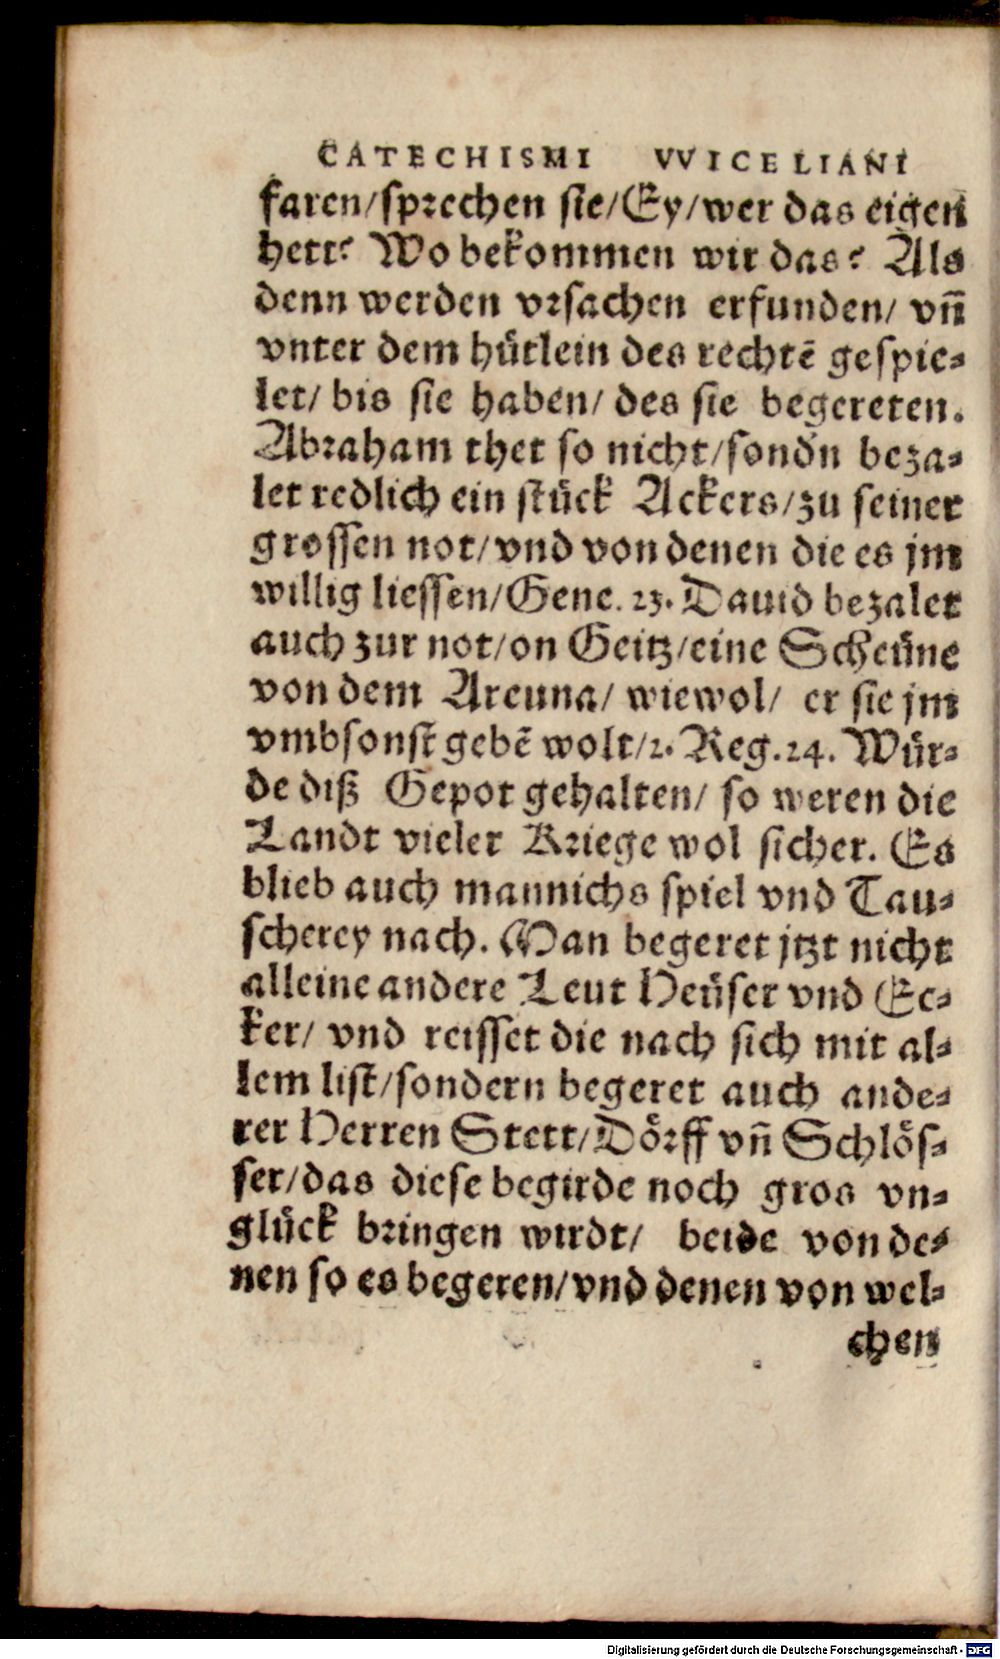 CATECHISMI VVICELIANI
faren/sprechen sie/Ey/wer das eigen
hett? Wo bekommen wir das? Als
denn werden vrsachen erfunden/ vn̄
vnter dem hütlein des rechtē gespie-
let/ bis sie haben/ des sie begereten.
Abraham thet so nicht/sondn̄ beza-
let redlich ein stück Ackers/zu seiner
grossen not/vnd von denen die es jm
willig liessen/Gene. 23. Dauid bezalet
auch zur not/on Geitz/eine Scheüne
von dem Areuna/ wiewol/ er sie jm
vmbsonst gebē wolt/2. Reg.24. Wür-
de diß Gepot gehalten/ so weren die
Landt vieler Kriege wol sicher. Es
blieb auch mannichs spiel vnd Tau-
scherey nach. Man begeret jtzt nicht
alleine andere Leut Heüser vnd Ec-
ker/ vnd reisset die nach sich mit al-
lem list/sondern begeret auch ande-
rer Herren Stett/Dörff vn̄ Schlös-
ser/das diese begirde noch gros vn-
glück bringen wirdt/ beide von de-
nen so es begeren/vnd denen von wel-
chen
Digitalisierung gefördert durch die Deutsche Forschungsgemeinschaft - DFG